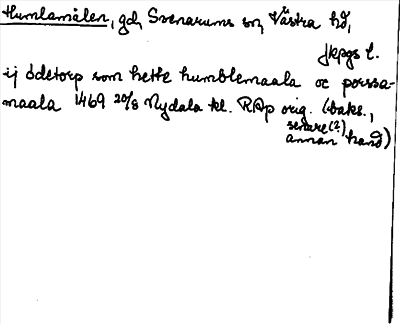 Humlamålen, gd, Svenarums sn, Västra hd,
Jkpgs l.
ij ödetorp som hette humblemaala oc porssa-
maala 1469 20/8 Nydala kl. RAp orig. (baks.,
senare(?)
annan hand)